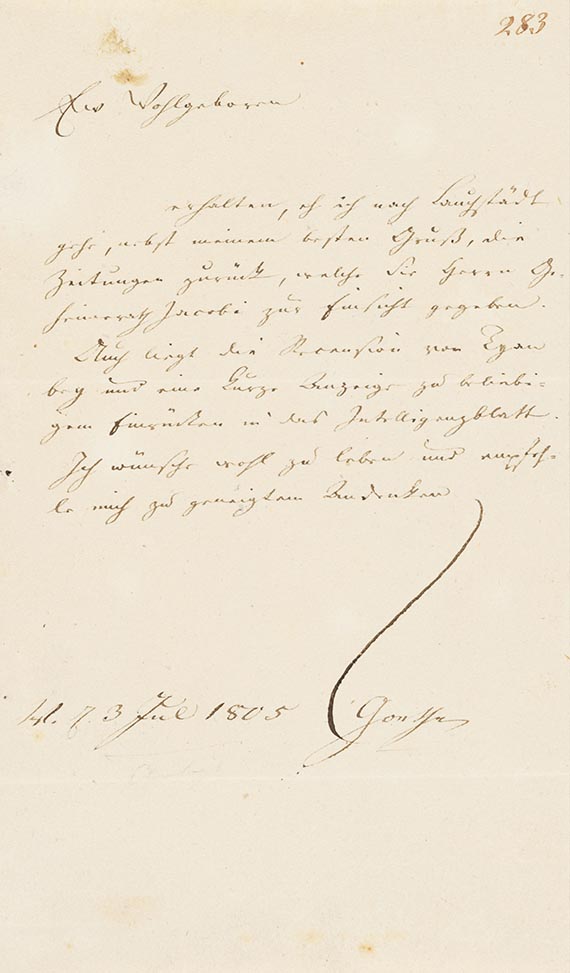 283
Ew Wohlgeboren
erhalten, eh ich nach Lauchstädt
gehe, nebst meinem besten Gruß, die
Zeitungen zurück, welche Sie Herrn Ge-
heimerath Jacobi zur Einsicht gegeben.
Auch liegt die Recension von
bey und eine kurze Anzeige zu beliebi-
gem Einrücken in das Intelligenzblatt.
Ich wünsche wohl zu leben und empfeh-
le mich zu geneigtem Andenken
W. d. 3 Jul 1805 Goethe